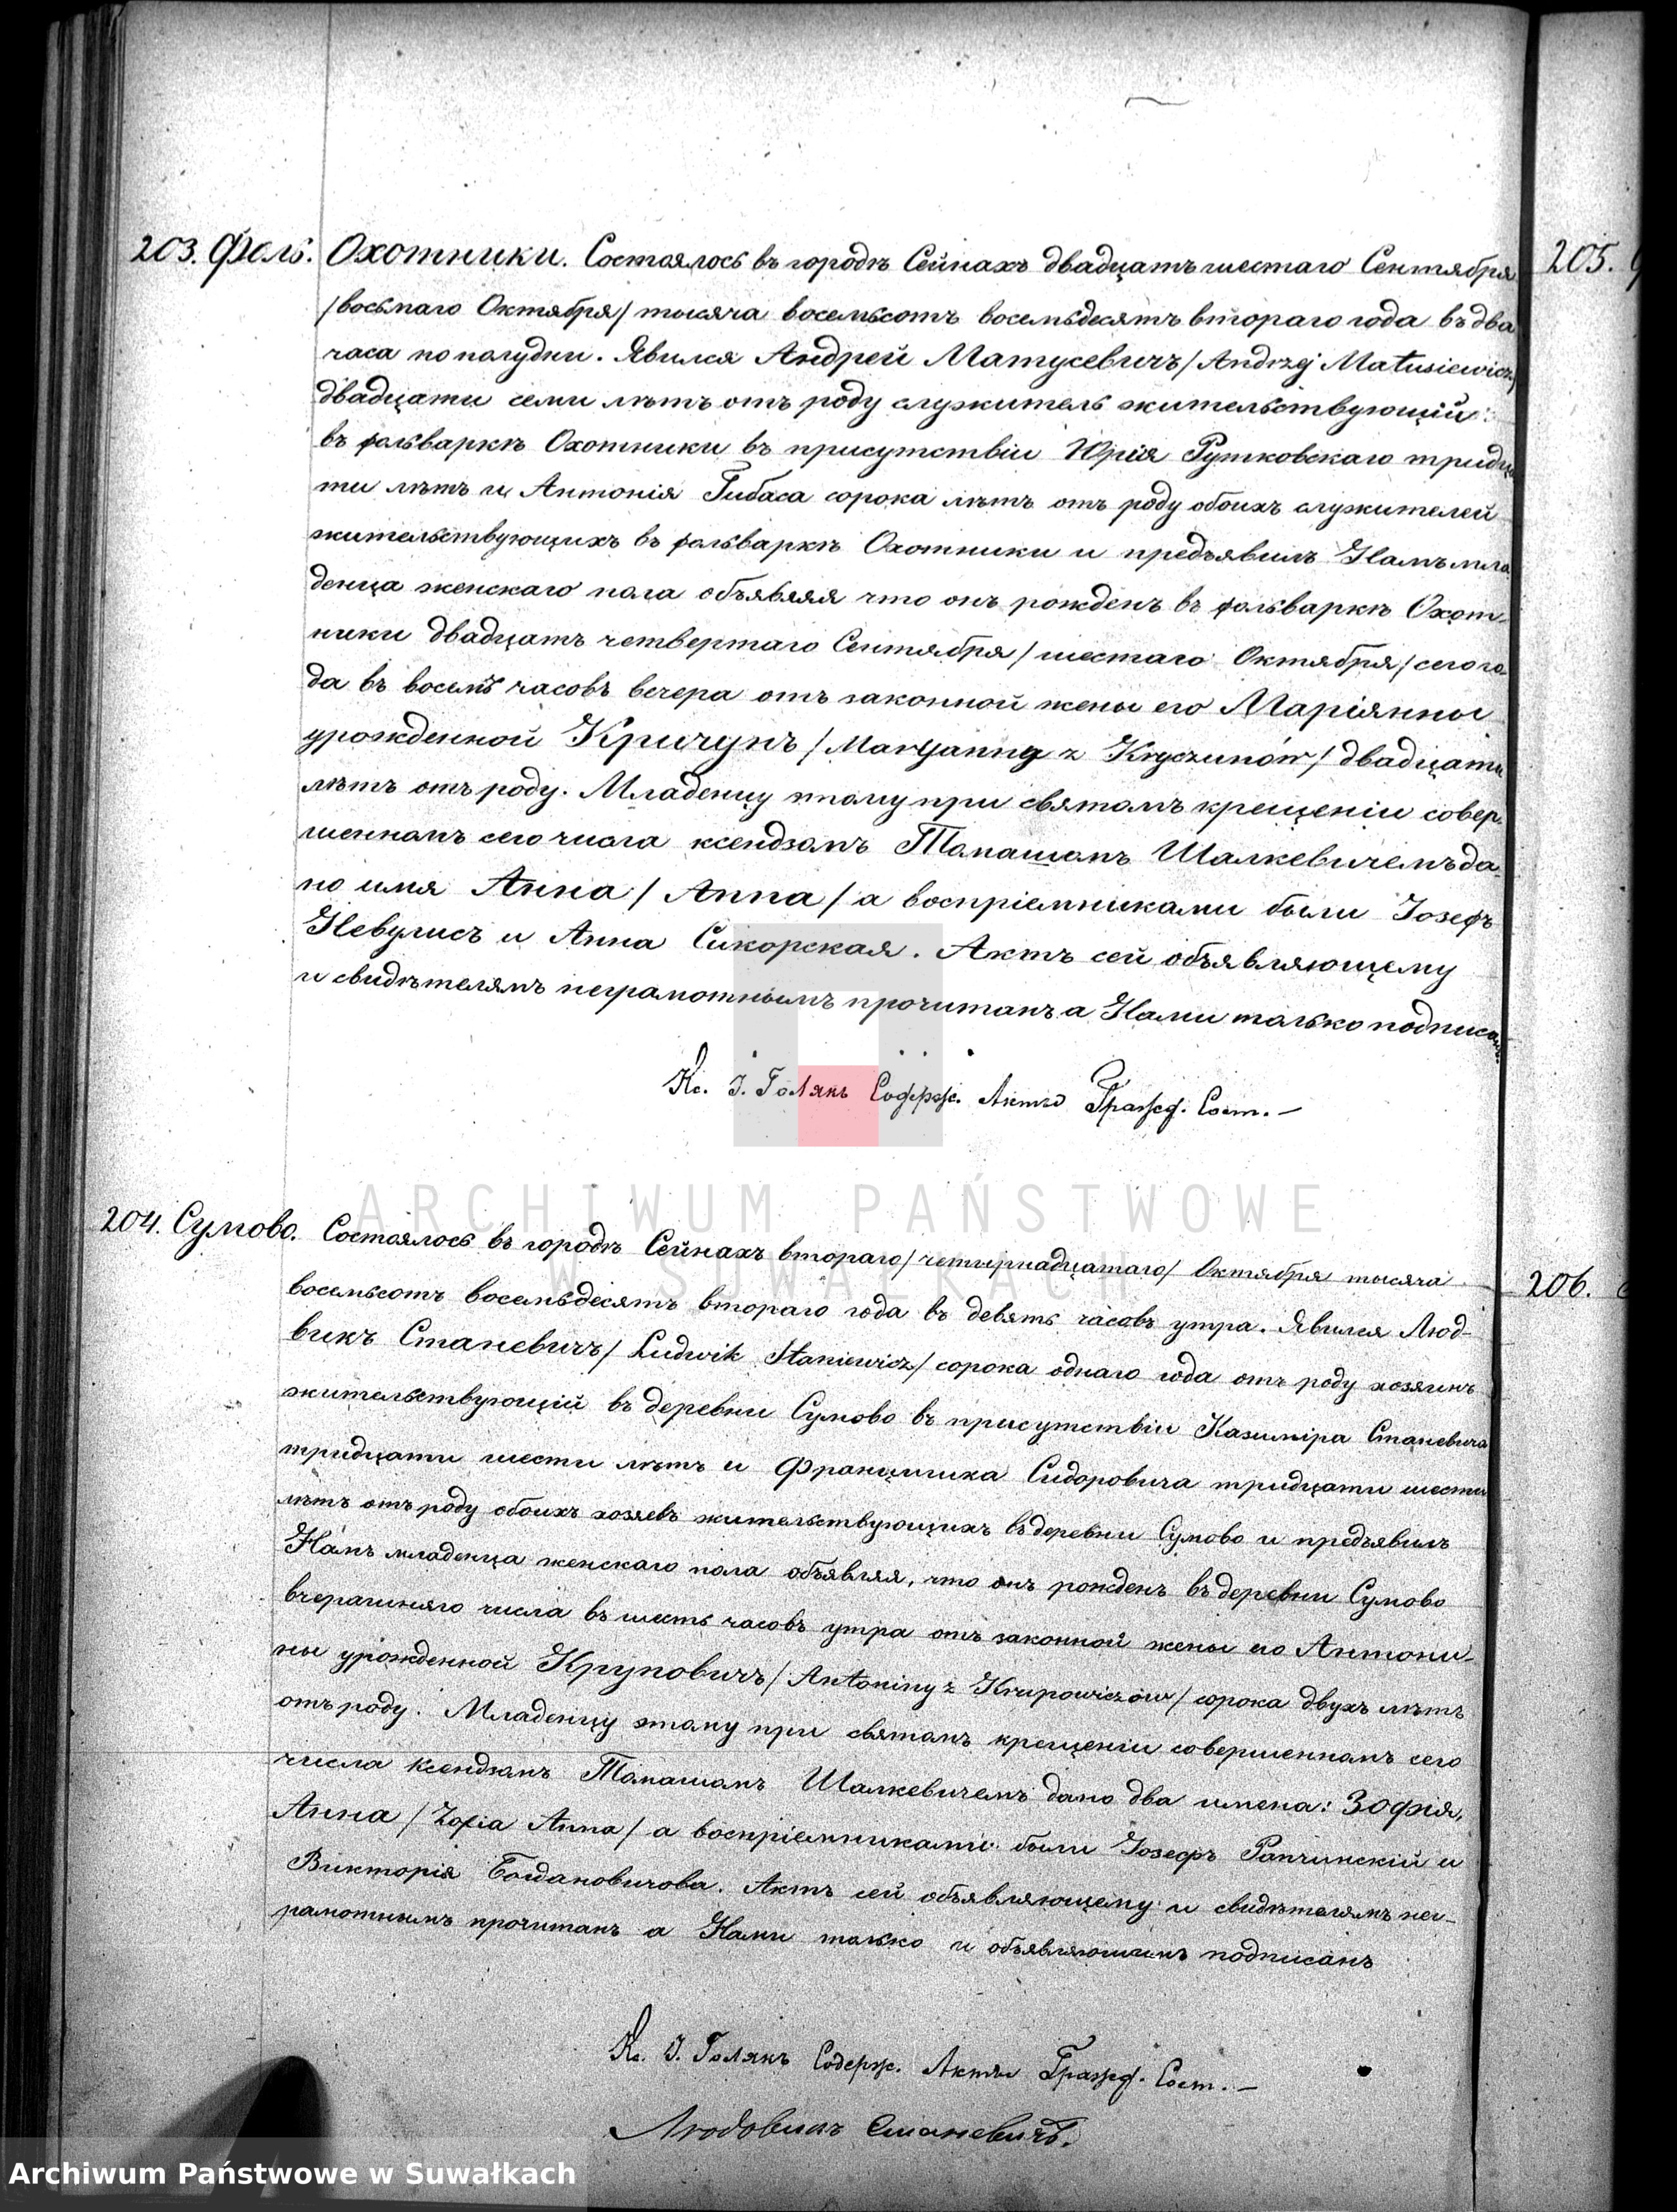 203. Фоль. Охотники. Состоялось въ городѣ Сейнахъ двадцать шестаго Сентября
/восьмаго Октября/ тысяча восемьсотъ восемьдесятъ втораго года въ два
часа пополудни. Явился Андрей Матусевичъ /Andrzej Matusiewicz/
двадцати семи лѣтъ отъ роду служитель жительствующій
въ фольваркѣ Охотники въ присутствіи Юрія Рутковскаго тридца
ти лѣтъ и Антонія Гибаса сорока лѣтъ отъ роду обоихъ служителей
жительствующихъ въ фольваркѣ Охотники и предъявилъ Намъ мла
денца женскаго пола объявляя что онъ рожденъ въ фольваркѣ Охот-
ники двадцать четвертаго Сентября /шестаго Октября/ сего го-
да въ восемь часовъ вечера отъ законной жены его Маріянны
урожденной Кричунъ /Maryanny z Kryczunów/ двадцати
лѣтъ отъ роду. Младенцу этому при святомъ крещеніи совер-
шенномъ сего числа ксендзомъ Томашомъ Шалкевичемъ да-
но имя Анна /Anna/ а воспріемниками были Іозефъ
Невулисъ и Анна Сикорская. Актъ сей объявляющему
и свидѣтелямъ неграмотнымъ прочитанъ а Нами только подписанъ.
Кс. І. Голякъ Содерж. Акты Гражд. Сост. —
204. Сумово. Состоялось въ городѣ Сейнахъ втораго /четырнадцатаго/ Октября тысяча
восемьсотъ восемьдесятъ втораго года въ девять часовъ утра. Явился Люд-
викъ Станевичъ /Ludwik Staniewicz/ сорока однаго года отъ роду хозяинъ
жительствующій въ деревни Сумово въ присутствіи Казиміра Станевича
тридцати шести лѣтъ и Францишка Сидоровича тридцати шести
лѣтъ отъ роду обоихъ хозяевъ жительствующихъ въ деревни Сумово и предъявилъ
Намъ младенца женскаго пола объявляя, что онъ рожденъ въ деревни Сумово
вчерашняго числа въ шесть часовъ утра отъ законной жены его Антони-
ны урожденной Круповичъ /Antoniny z Krupowiczów/ сорока двухъ лѣтъ
отъ роду. Младенцу этому при святомъ крещеніи совершенномъ сего
числа ксендзомъ Томашомъ Шалкевичемъ дано два имена: Зофія,
Анна /Zofia Anna/ а воспріемниками были Іозефъ Рапчинскій и
Викторія Богдановичова. Актъ сей объявляющему и свидѣтелямъ нег-
рамотнымъ прочитанъ а Нами только и объявляющимъ подписанъ
Кс. І. Голякъ Содерж. Акты Гражд. Сост. —
Людовикъ Станевичъ.
205.
206.
ARCHIWUM PAŃSTWOWE
W SUWAŁKACH
Archiwum Państwowe w Suwałkach